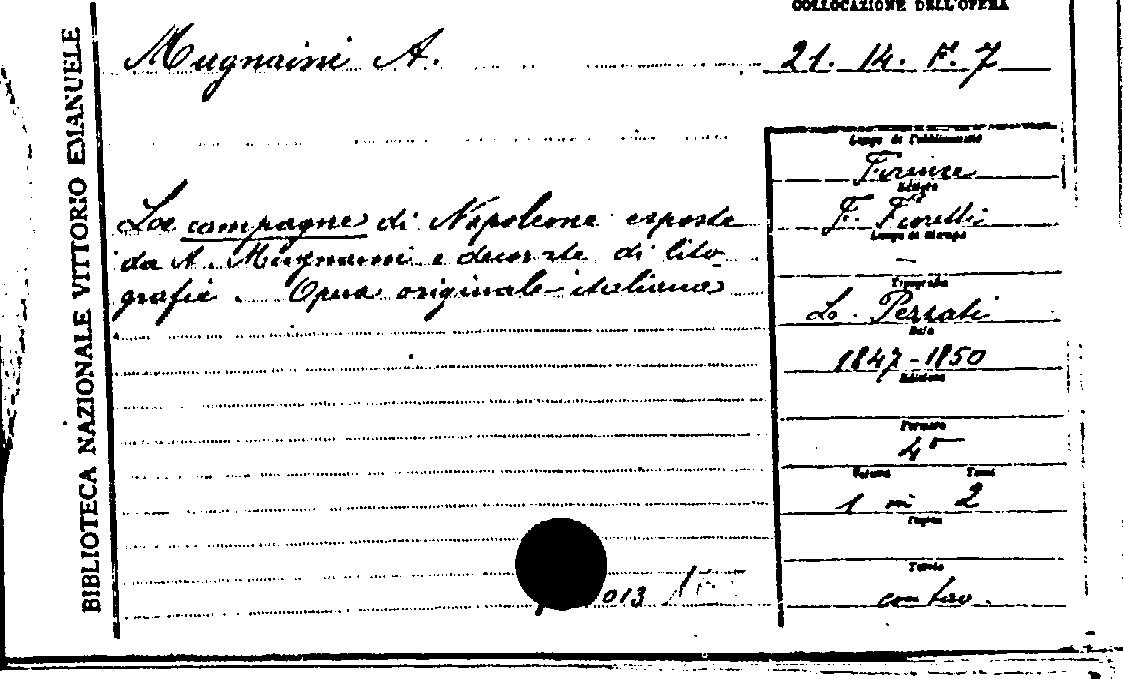 COLLOCAZIONE DELL'OPERA
BIBLIOTECA NAZIONALE VITTORIO EMANUELE
Mugnaini A.
21. 14. F. 7
Luogo di Pubblicazione
Firenze
Editore
F. Fioretti
Luogo di Stampa
—
Tipografia
L. Pezzati
Data
1847-1850
Edizione
Formato
4°
Volume Tomo
1 in 2
Pagine
Tavole
con tav.
La campagne di Napoleone esposte
da A. Mugnaini e decorate di lito-
grafie. Opera originale italiana
013